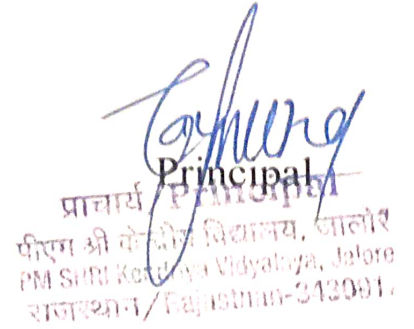 Principal
प्राचार्य / Principal
पीएम श्री केन्द्रीय विद्यालय, जालोर
PM SHRI Kendriya Vidyalaya, Jalore
राजस्थान / Rajasthan-343001.